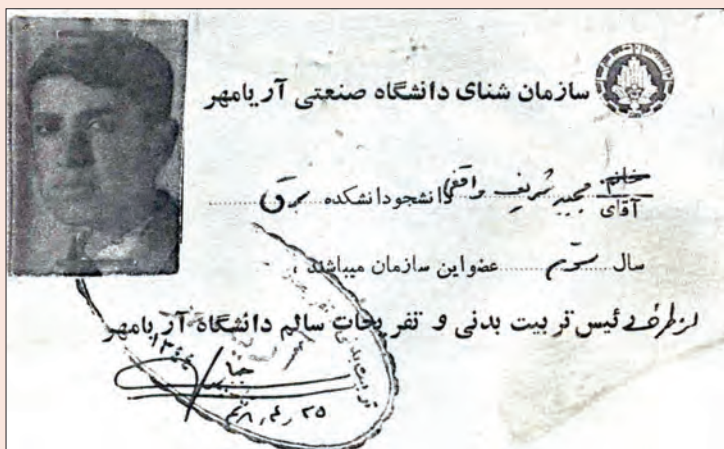 سازمان شنای دانشگاه صنعتی آریامهر
خانم
آقای مجید شریف واقفی دانشجو دانشکده برق
سال سوم عضو این سازمان میباشند .
از طرف رئیس تربیت بدنی و تفریحات سالم دانشگاه آریامهر
۴۸,۴,۲۵
تربیت بدنی